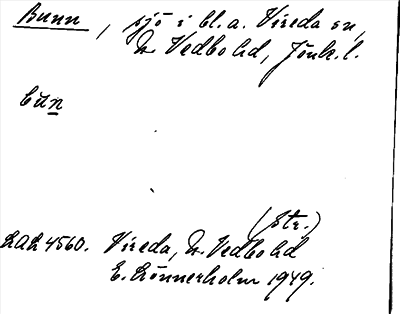 Bunn, sjö i bl.a. Vireda sn,
N. Vedbo hd, Jönk. l.
bun
(str.)
LAL 4560. Vireda, N. Vedbo hd
E. Lönnerholm 1949.